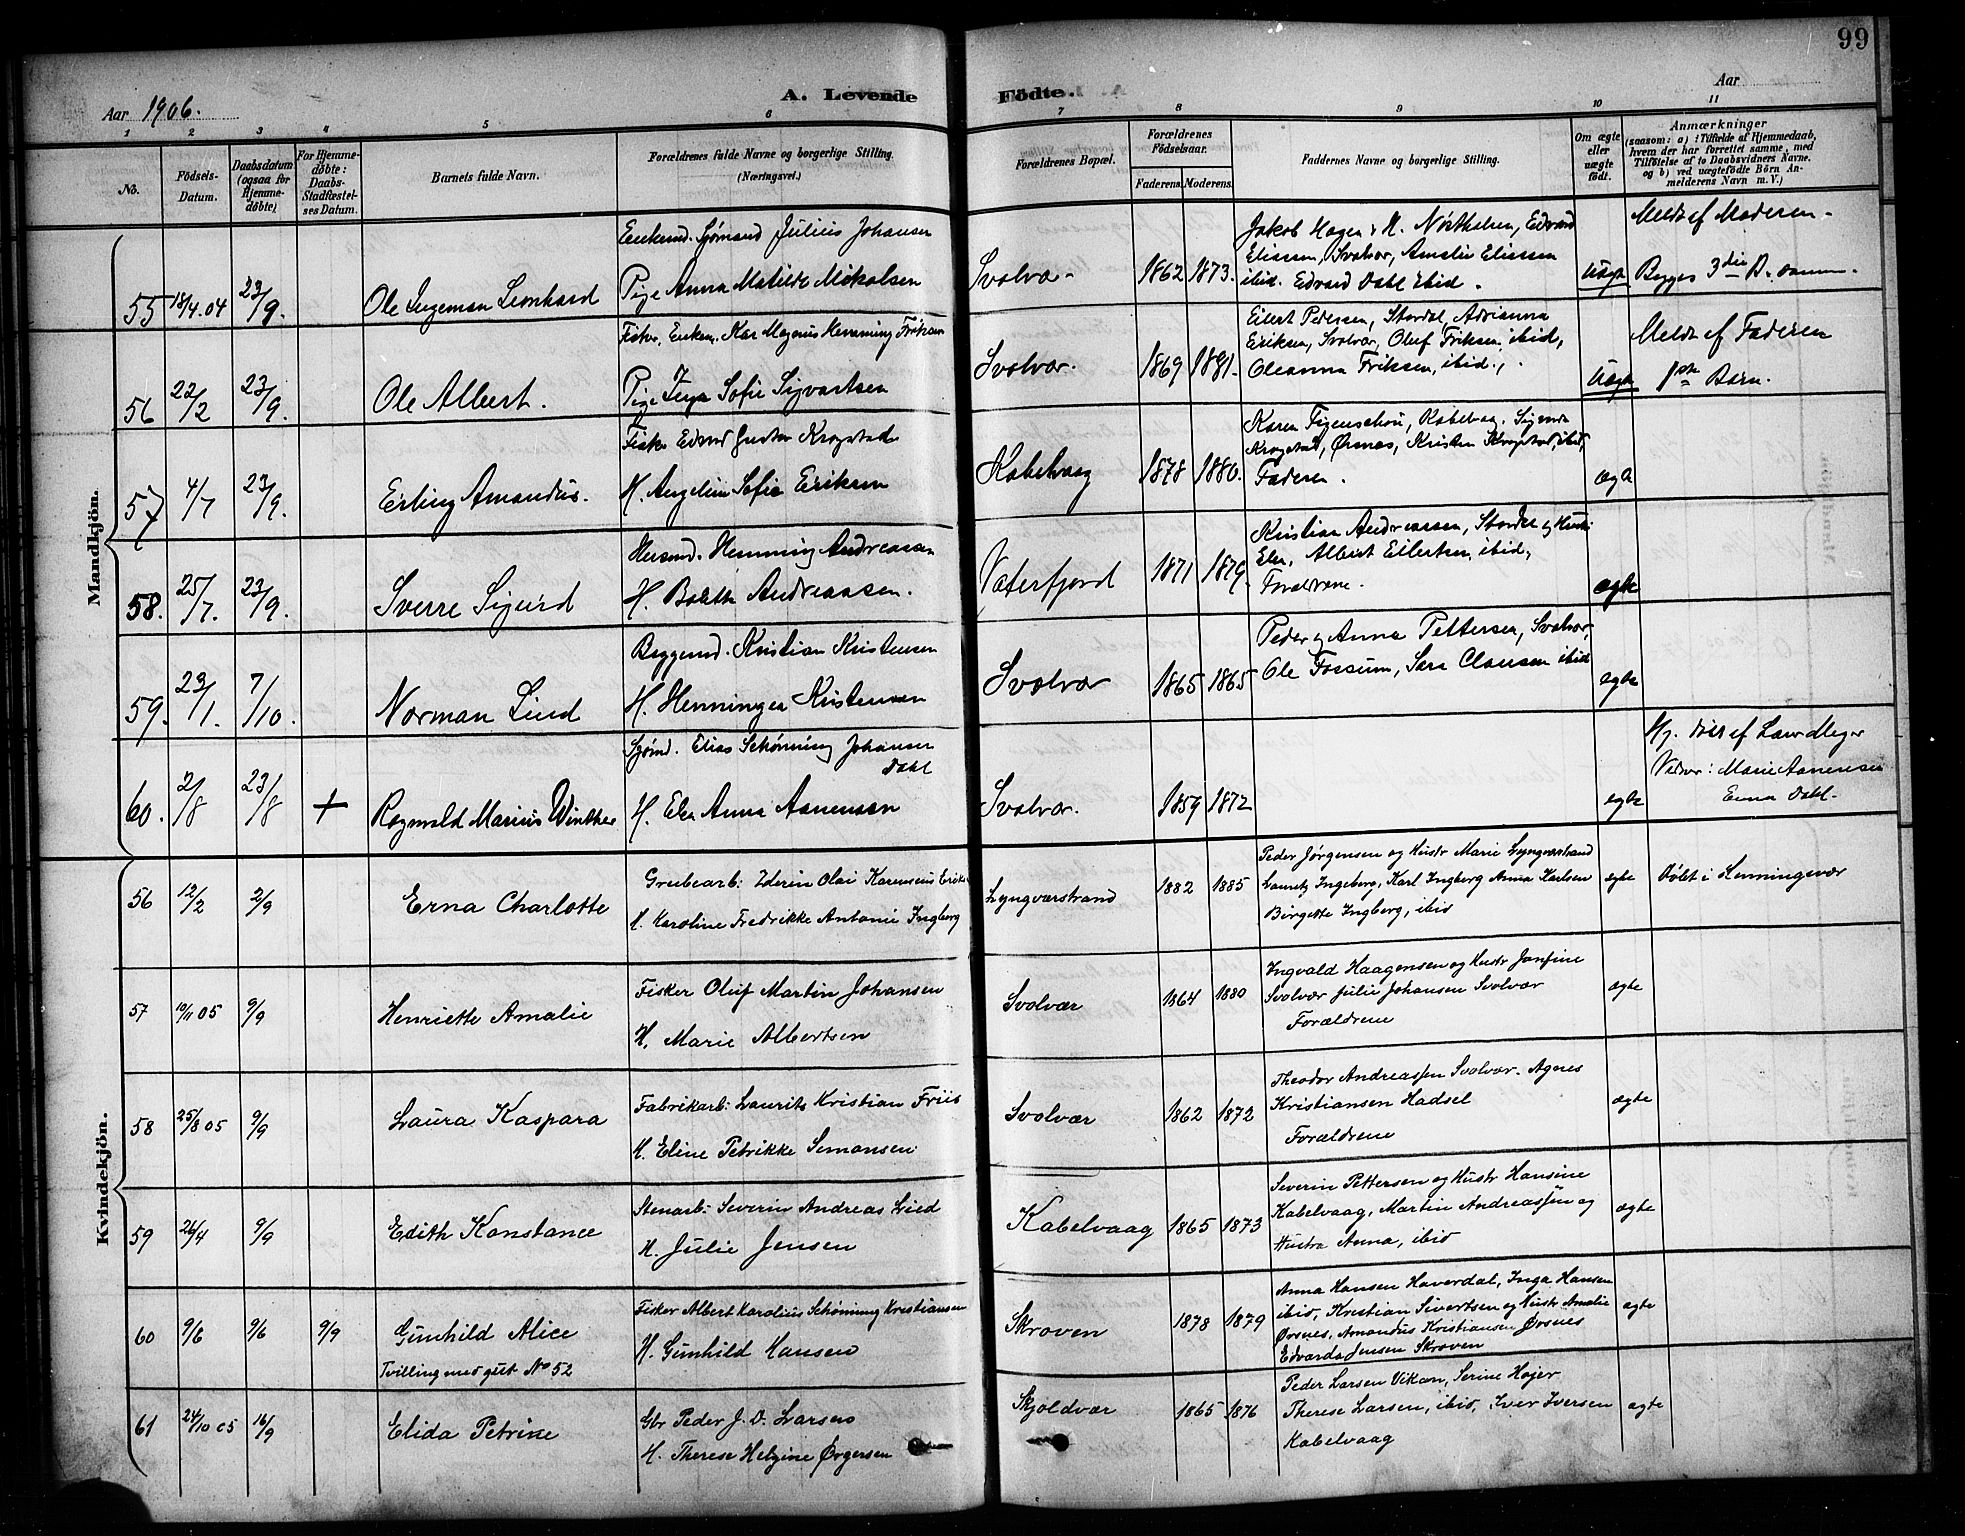 99
Aar 1906.
A. Levende Födte.
Aar
1 2 3 4 5 6 7 8 9 10 11
No.
Födsels-Datum.
Daabsdatum (ogsaa for Hjemme-döbte)
For Hjemme-döbte: Daabs-Stadfæstel-ses Datum.
Barnets fulde Navn.
Forældrenes fulde Navne og borgerlige Stilling. (Næringsvei.)
Forældrenes Bopæl.
Forældrenes Födselsaar.
Faderens. Moderens.
Faddernes Navne og borgerlige Stilling.
Om ægte eller uægte födt.
Anmærkninger
(saasom: a) i Tilfælde af Hjemmedaab,
hvem der har forrettet samme, med
Tilföielse af to Daabsvidners Navne.
og b) ved uægtefödte Börn An-
melderens Navn m. V.)
Mandkjön.
55 18/4.04 23/9. Ole Ingeman Leonhard
Enkemd. Sjømand Julius Johansen
Pige Anna Matilde Mikalsen
Svolvær 1862 1873.
Jakob Hagen, M. Northolsen, Edvard
Eliassen, Svolvær, Amalie Eliassen
ibid. Edvard Dahl ibid.
Uægte
Meldt af Moderen.
Begges 3die B.
56 22/2 23/9. Ole Albert.
Fisker, Enkem. Kar Magnus Henning
Pige Inga Sofie Sigvartsen
Svolvær. 1869 1881.
Eilert Pedersen, Stordal, Adrianna
Eriksen, Svolvær, Oluf Eriksen, ibid,
Oleanna Eriksen, ibid.,
Uægte
Meldt af Faderen
1ste Barn.
57 4/7 23/9. Erling Amandus.
Fisker Edvard Gustav Krogstad
H. Angelin Sofie Eriksen
Kabelvaag 1878 1880.
Karen Figenschou, Kabelvag. Signe
Krogstad, Ørsnes, Kristen Krogstad, ibid,
Faderen.
ægte
58. 25/7. 23/9. Sverre Sigurd
Husmd. Hemming Andreassen
H. Bolette Andreassen.
Vaterfjord 1871 1879.
Kristian Andreassen, Stordal og Hustr
Elen, Albert Eilertsen, ibid,
Forældrene.
ægte
59. 23/1. 7/10. Norman Lind
Byggemd. Kristian Kristensen
H. Henninga Kristensen
Svolvær 1865 1865
Peder og Anna Pettersen, Svolvær,
Ole Fossum, Sara Clausen ibid
ægte
60. 2/8 23/8 + Ragnvald Marius Winther
Sjømd. Elias Schønning Johansen
Dahl
H. Elen Anna Aanensen
Svolvær. 1859 1872
ægte
Hj. døbt af Laerdleger
Vidner: Marie Aanensen
Erna Dahl.
Kvindekjön.
56 12/2 2/9 Erna Charlotte
Grubearb: Edevin Olai Karenius
H. Karoline Fredrikke Antonie Ingberg
Lyngværstrand 1882 1885
Peder Jørgensen og Hustr Marie Lyngværstrand
Lauritz Ingeberg, Karl Ingberg Anna Karlsen
Birgitte Ingberg, ibid
ægte
Døbt i Henningsvær
57 10/11 05 9/9 Henriette Amalie
Fisker Oluf Martin Johansen
H. Marie Albertsen
Svolvær 1864 1880
Ingvald Haagensen og Hustr Jonfine
Svolvær Julie Johansen Svolvær
Forældrene
ægte
58 25/8 05 9/9 Laura Kaspara
Fabrikarb: Laurits Kristian Friis
H. Eline Petrikke Simonsen
Svolvær 1862 1872
Theodor Andreassen Svolvær. Agnes
Kristiansen Hadsel
Forældrene
ægte
59 26/4 9/9 Edith Konstance
Stenarb: Severin Andreas Lied
H. Julie Jensen
Kabelvaag 1865 1873
Severin Pettersen og Hustr Hansine
Kabelvaag, Martin Andreassen og
Hustra Anna, ibid
ægte
60 9/6 9/6 9/9 Gunhild Alice
Tvilling med gut No 52
Fisker Albert Karolius Schønning Kristiansen
H. Gunhild Hansen
Skroven 1878 1879
Anna Hansen Haverdal, Inga Hansen
ibid, Kristian Sivertsen og Hustr Amalie
Ørsnes, Amandus Kristiansen Ørsnes
Edvarda Jensen Skroven
ægte
61 24/10 05 16/9 Elida Petrine
Gbr Peder J. D. Larsen
H. Therese Helgine Ørgersen
Skjoldvær 1865 1876
Peder Larsen Vikan, Serine Højer
Therese Larsen, ibid, Iver Iversen
Kabelvaag
ægte